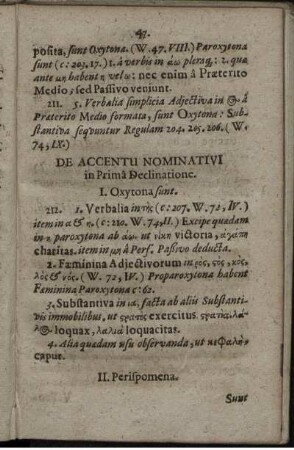 49.
posita, sunt Oxytona. (W. 47. VIII.) Paroxytona
sunt (c: 203. 17.) 1. á verbis in άω pleraq;: 2. quæ
ante μη habent η vel ω: nec enim â Præterito
Medio; sed Passivo veniunt.
211. 5. Verbalia simplicia Adjectiva in ος â
Præterito Medio formata, sunt Oxytona: Sub-
stantiva seqvuntur Regulam 204. 205. 206. (W.
74, IX.)
DE ACCENTU NOMINATIVI
in Primâ Declinatione.
I. Oxytona sunt.
212. 1. Verbalia in τὴς (c: 207. W. 72, IV.)
item in α & η. (c: 210. W. 74, II.) Excipe quædam
in η paroxytona ab άω. ut νίκη victoria, ἀγάπη
charitas. item in μη â Perf. Passivo deducta.
2. Fæminina Adjectivorum in ρος, τὸς, κὸς,
λὸς & νὸς. (W. 72, IV.) Proparoxytona habent
Fæminina Paroxytona c: 62.
3. Substantiva in ια, facta ab aliis Substanti-
vis immobilibus, ut στρατὸς exercitus στρατιὰ, λά-
λος loquax, λαλιὰ loquacitas.
4. Alia quædam usu observanda, ut κεφαλὴ
caput.
II. Perispomena.
Sunt